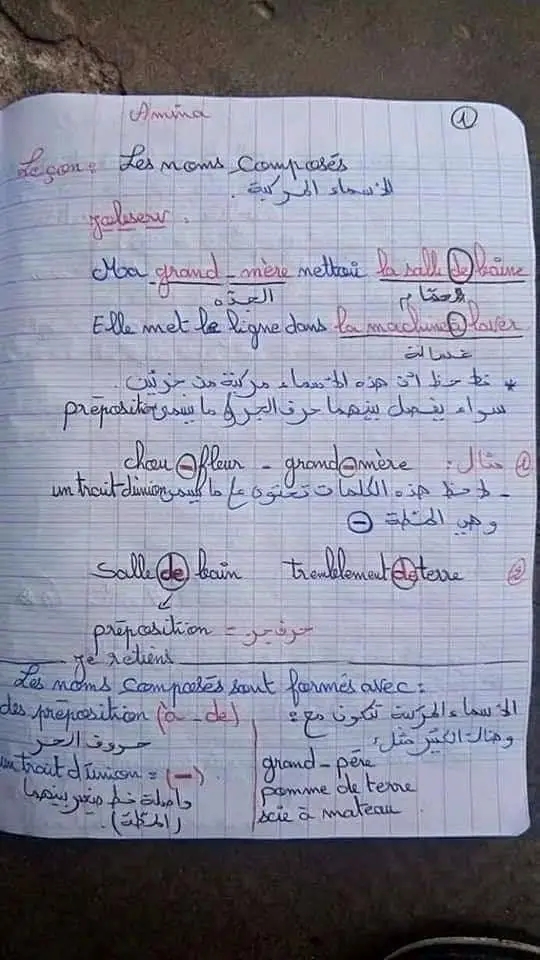 Amina
1
Leçon: Les noms Composés
الأسماء المركبة.
J'observe.
Ma grand-mère nettoie la salle de baine
الجدة الحمام
Elle met le ligne dans la machine à laver
غسالة
* نلاحظ أن هذه الأسماء مركبة من جزئين.
سواء يفصل بينهما حرف الجر أو ما يسمى préposition
① مثال: chou-fleur - grand-mère
- لاحظ هذه الكلمات تحتوي على ما يسمى un trait d'union
وهي المطة -
② salle de bain tremblement de terre
préposition = حرف جر
je retiens
Les noms composés sont formés avec:
الأسماء المركبة تتكون مع:
des préposition (à - de)
حروف الجر
un trait d'union = (-)
واصلة خط صغير بينهما
(المطة).
وهناك الكثير مثل:
grand-père
pomme de terre
scie à mateau